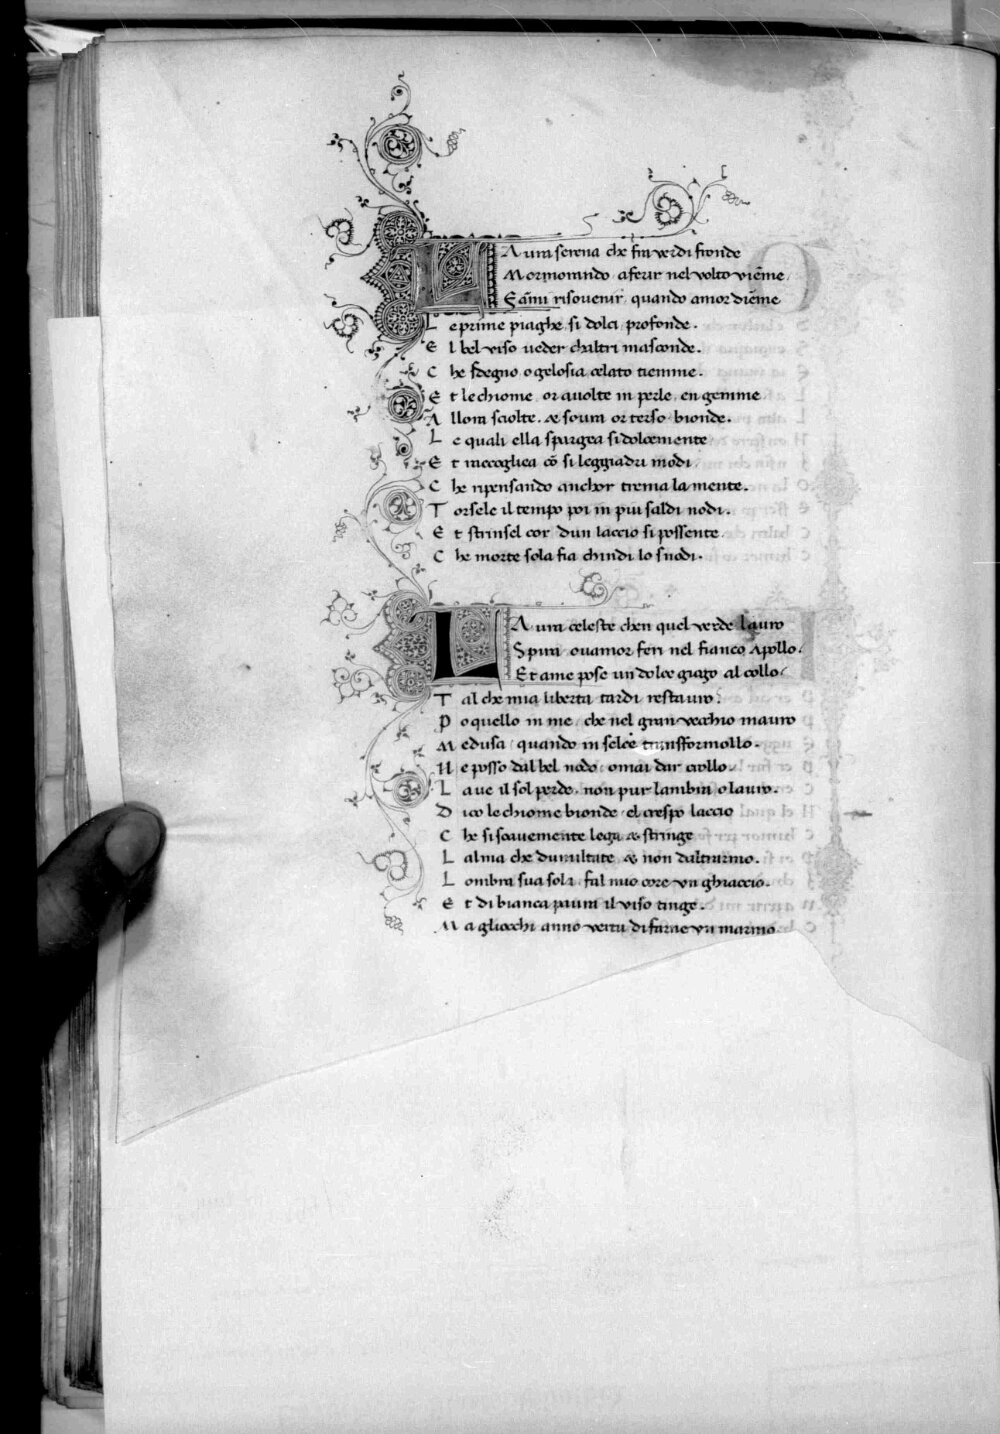 LA ura serena che fra verdi fronde
Mormorando a ferir nel volto viẽme
Fãmi risouenir quando amor diẽme
L e prime piaghe si dolci profonde.
E l bel viso ueder chaltri masconde.
C he sdegno o gelosia celato tiemme.
E t le chiome or auolte in perle en gemme
A llora sciolte. & soura or terso bionde.
L e quali ella spargea si dolcemente
E t raccogliea cõ si leggiadri modi.
C he ripensando anchor trema la mente.
T orsele il tempo poi in piu saldi nodi.
E t strinsel cor dun laccio si possente
C he morte sola fia chindi lo snodi.
LA ura celeste chen quel verde lauro
Spira ouamor feri nel fianco Apollo.
Et a me pose un dolce giogo al collo
T al che mia liberta tardi restauro.
P o quello in me, che nel gran vecchio mauro
M edusa quando in selce transformollo.
N e posso dal bel nodo omai dar crollo.
L aue il sol perde. non pur lambra o lauro.
D ico le chiome bionde el crespo laccio
C he si soauemente lega & stringe
L alma che dumiltate & non daltrarmo.
L ombra sua sola fal mio core vn ghiaccio.
E t di bianca paura il viso tinge.
M a gliocchi anno vertu di farne vn marmo.